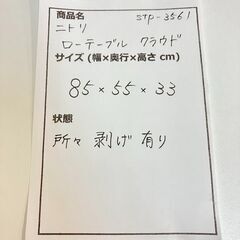 商品名 STP-3561
ニトリ
ローテーブル クラウド
サイズ (幅×奥行×高さ cm)
85×55×33
状態
所々 剥げ 有り